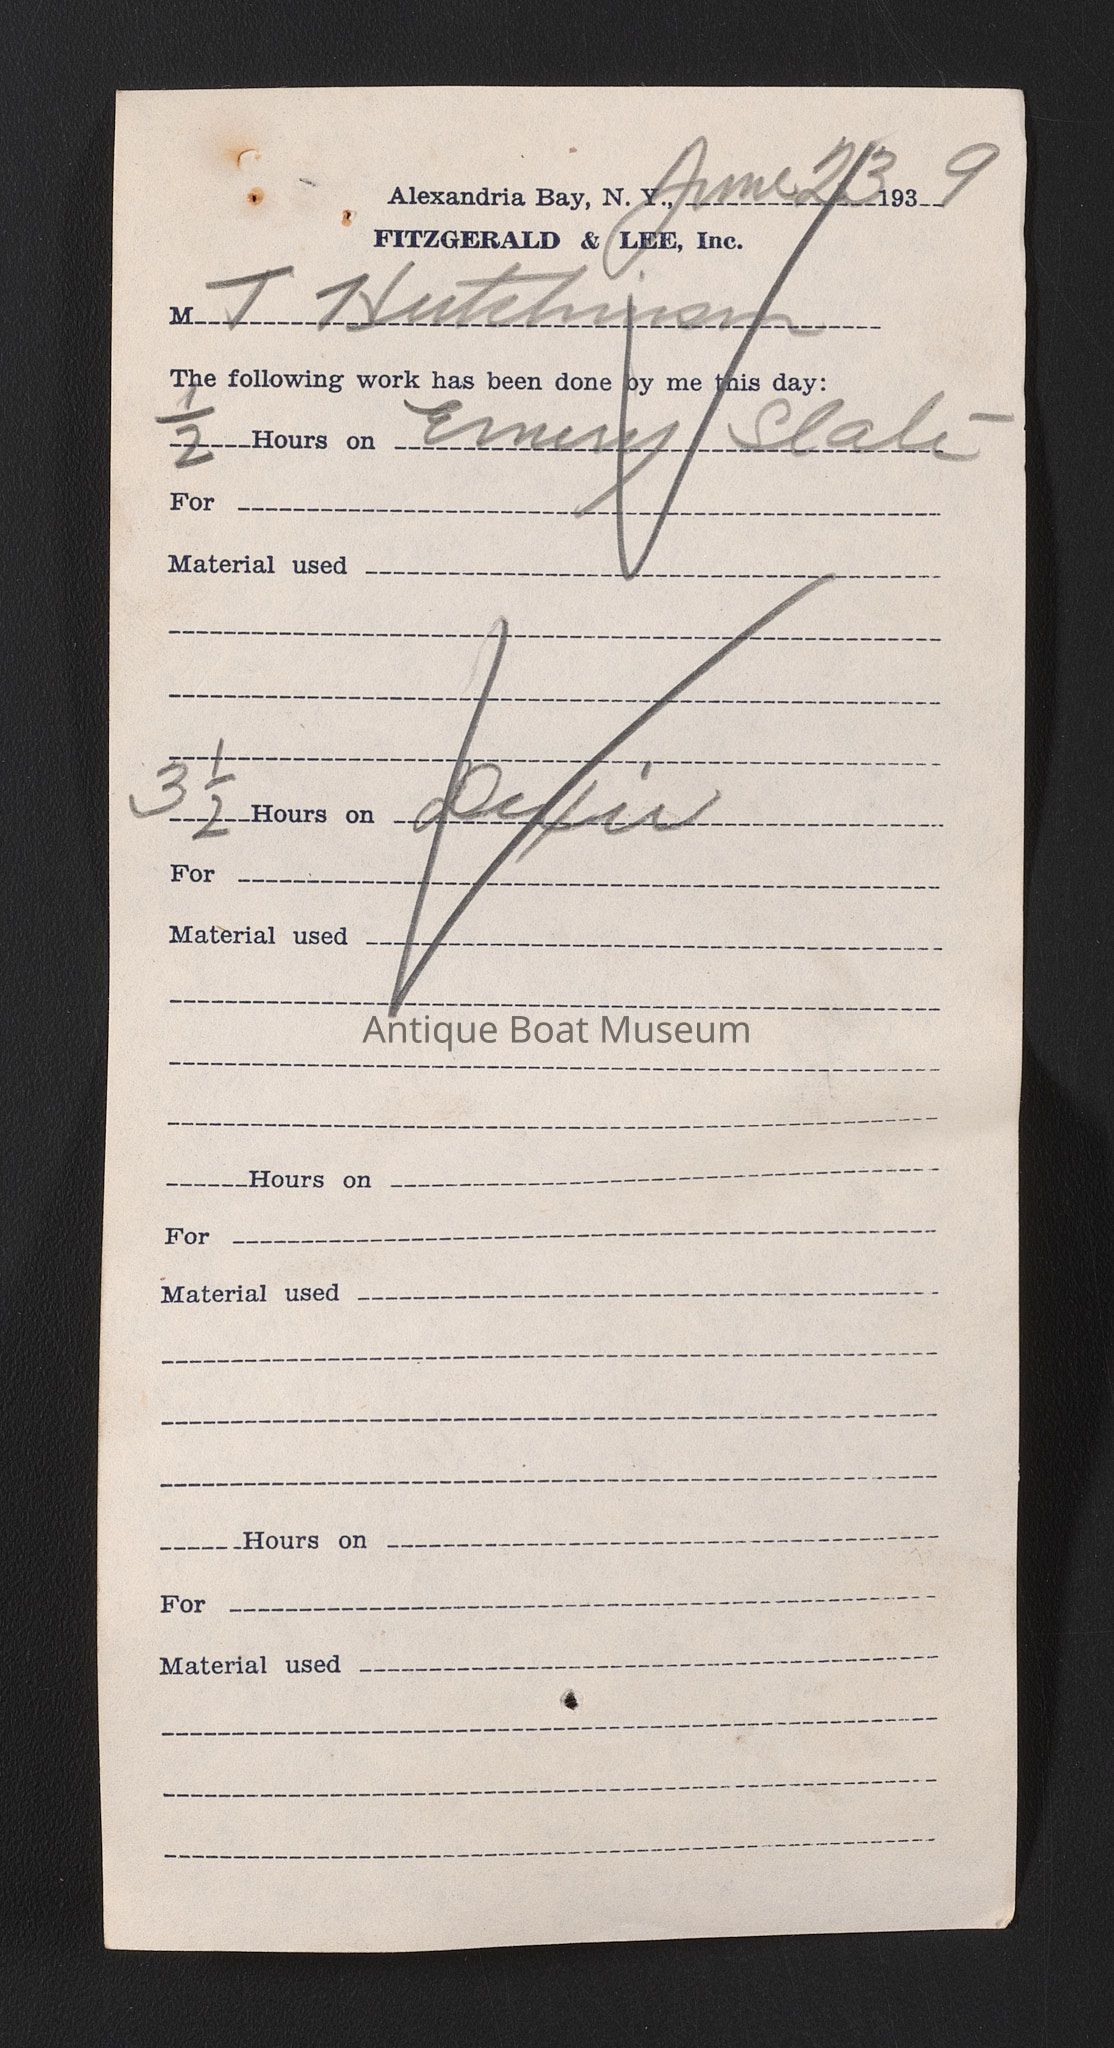 Alexandria Bay, N. Y., June 23 1939
FITZGERALD & LEE, Inc.
M T Hutchinson
The following work has been done by me this day:
1/2 Hours on Emery Slate
For
Material used
3 1/2 Hours on Dixie
For
Material used
Antique Boat Museum
Hours on
For
Material used
Hours on
For
Material used